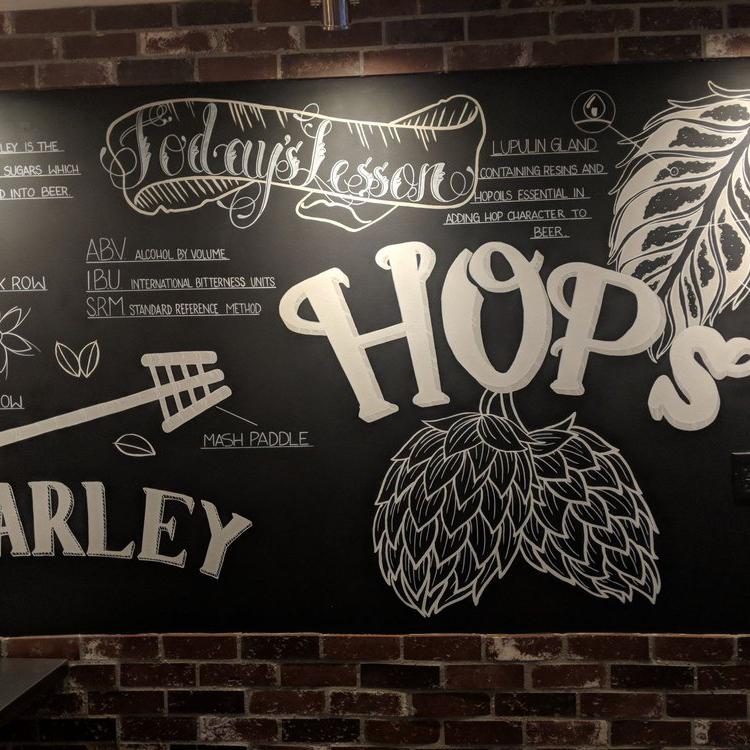 LEY IS THE
SUGARS WHICH
D INTO BEER.
Today's Lesson
LUPULIN GLAND
CONTAINING RESINS AND
HOPOILS ESSENTIAL IN
ADDING HOP CHARACTER TO
BEER.
ABV ALCOHOL BY VOLUME
IBU INTERNATIONAL BITTERNESS UNITS
SRM STANDARD REFERENCE METHOD
X ROW
HOPS
OW
MASH PADDLE
ARLEY